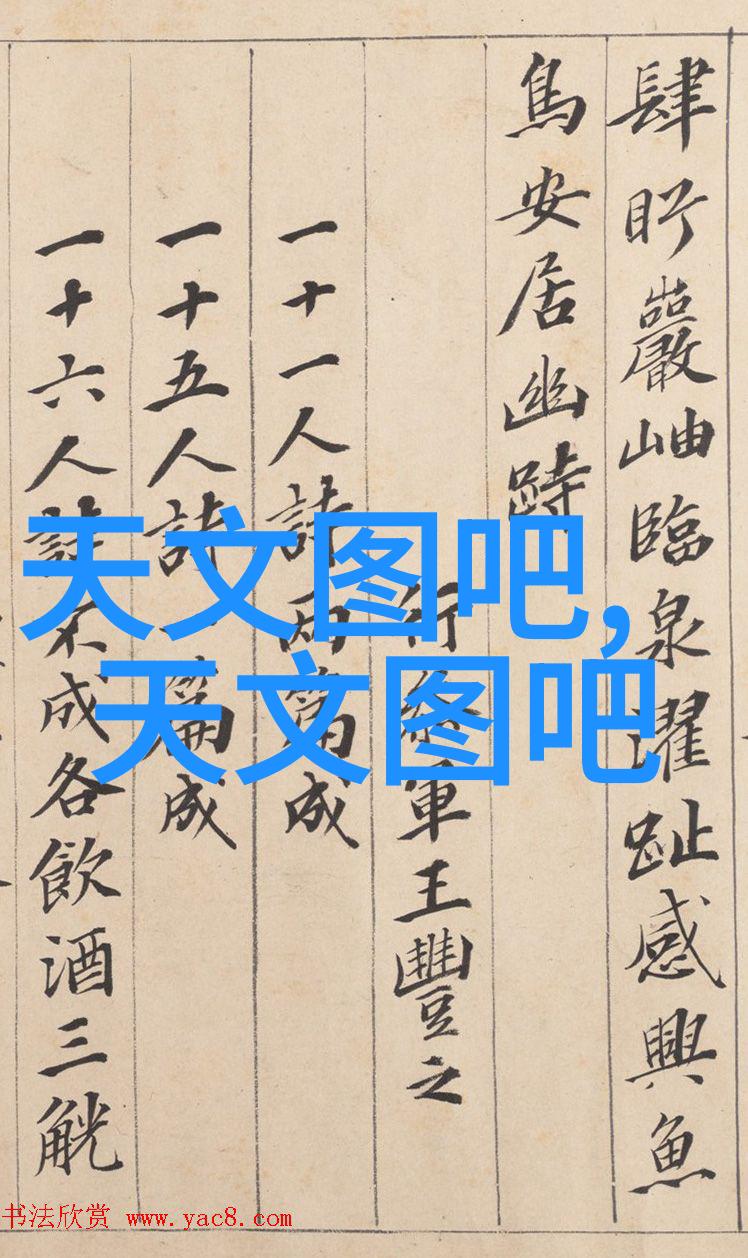 肆盱巖岫臨泉濯趾感興魚
鳥安居幽跱
行參軍王豐之
一十一人詩兩篇成
一十五人詩一篇成
一十六人詩不成各飲酒三觥
天文图吧,
天文图吧
书法欣赏 www.yac8.com